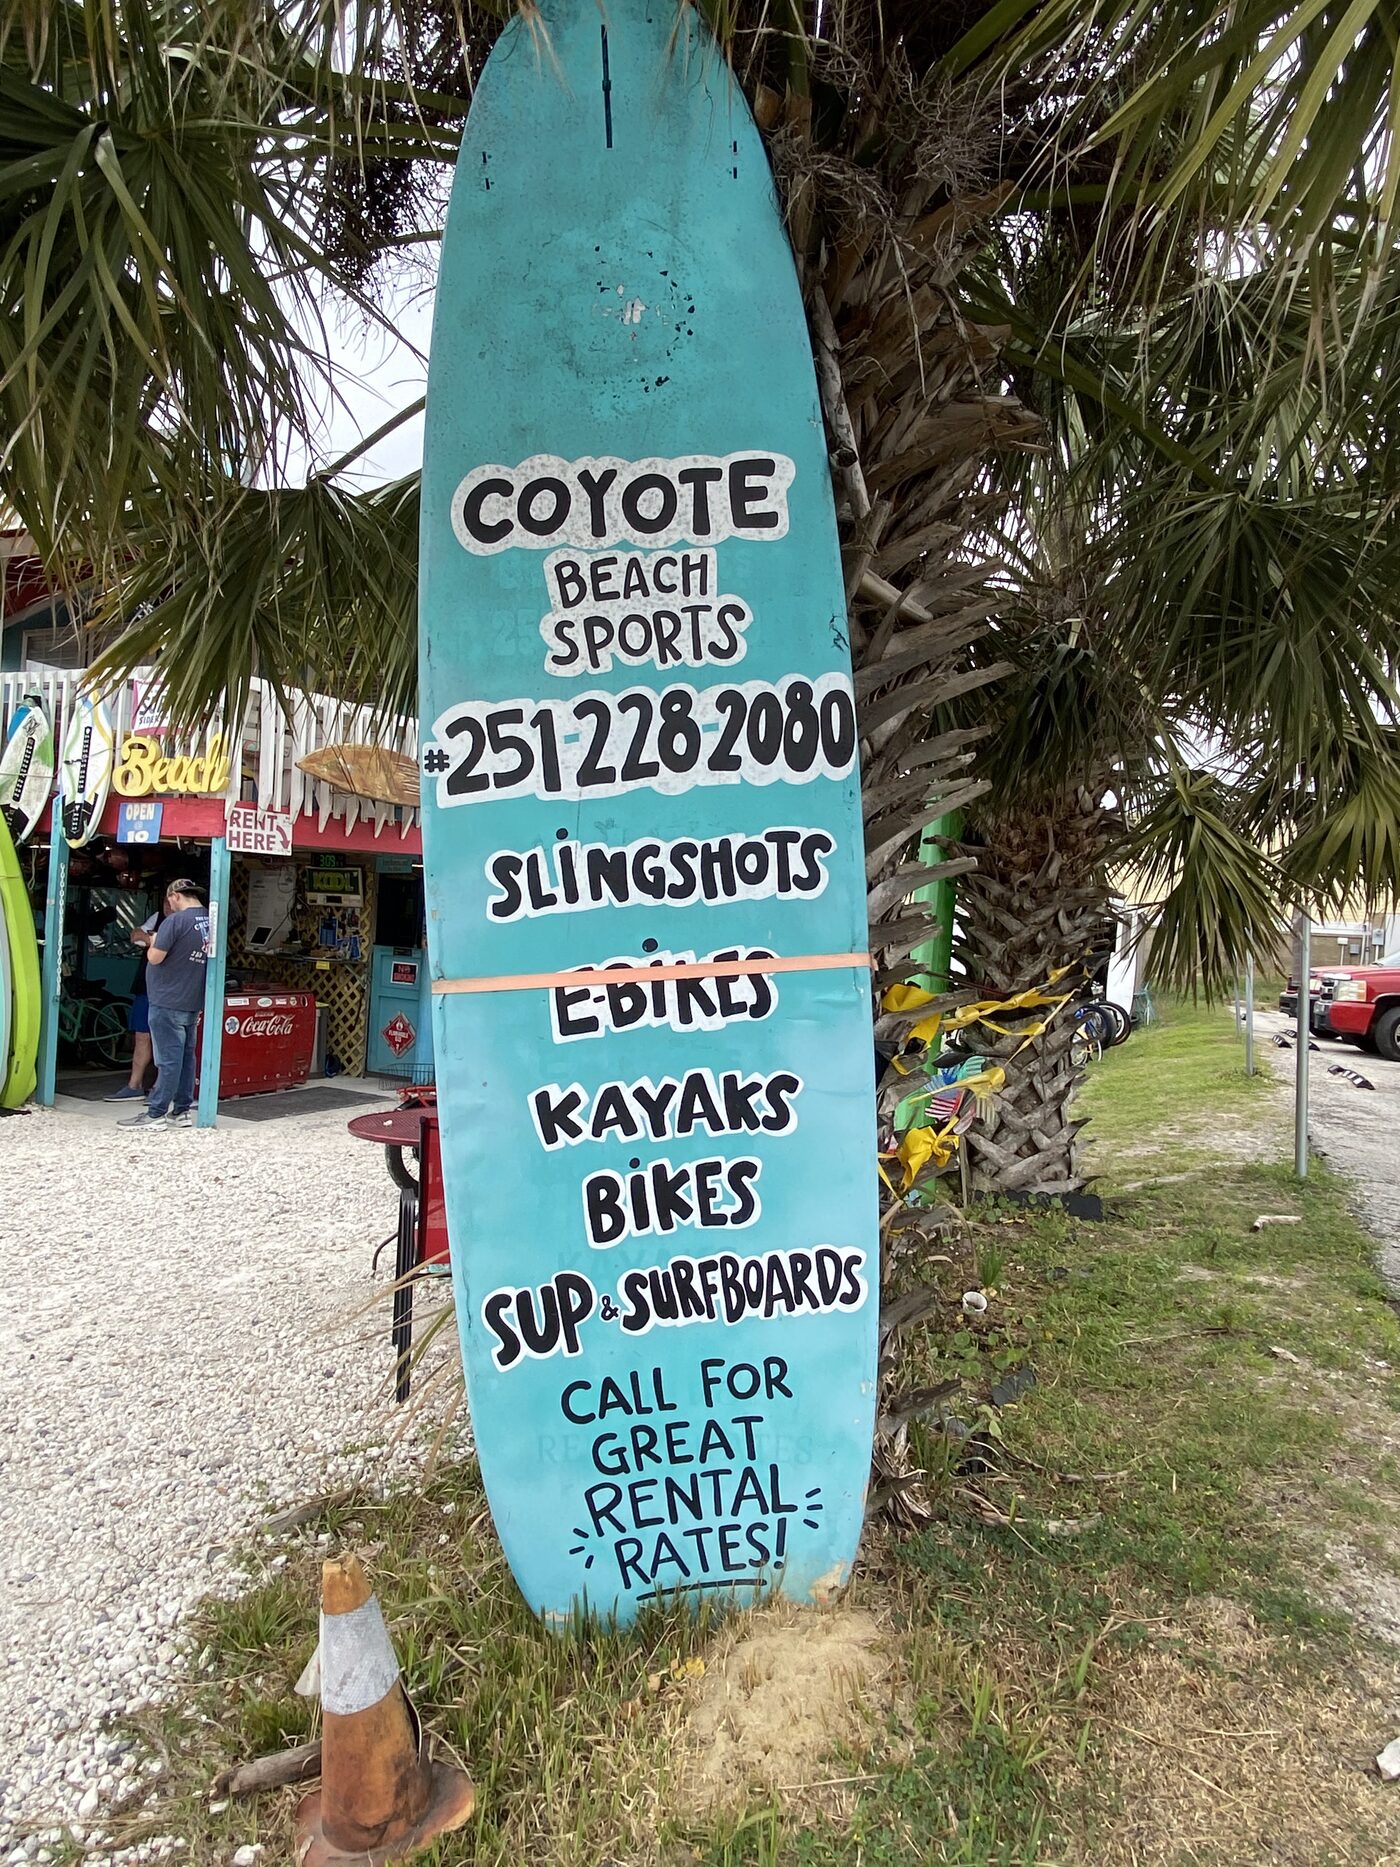 COYOTE
BEACH
SPORTS
#251-228-2080
SLINGSHOTS
E-BIKES
KAYAKS
BIKES
SUP & SURFBOARDS
CALL FOR
GREAT
RENTAL
RATES!
Beach
OPEN
RENT
HERE
Coca-Cola